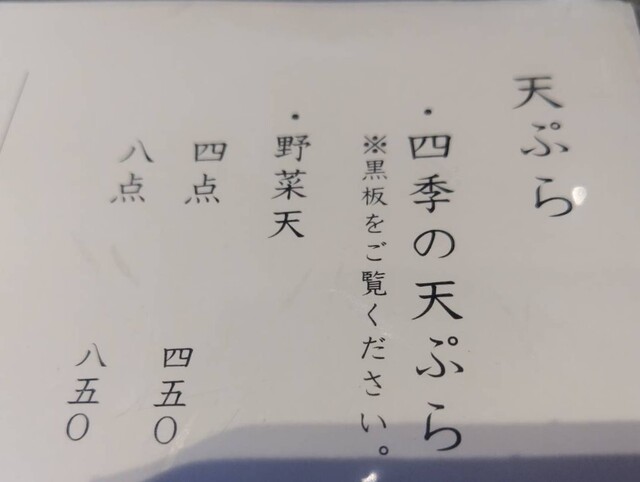 天ぷら
・四季の天ぷら
※黒板をご覧ください。
・野菜天
四点 四五〇
八点 八五〇